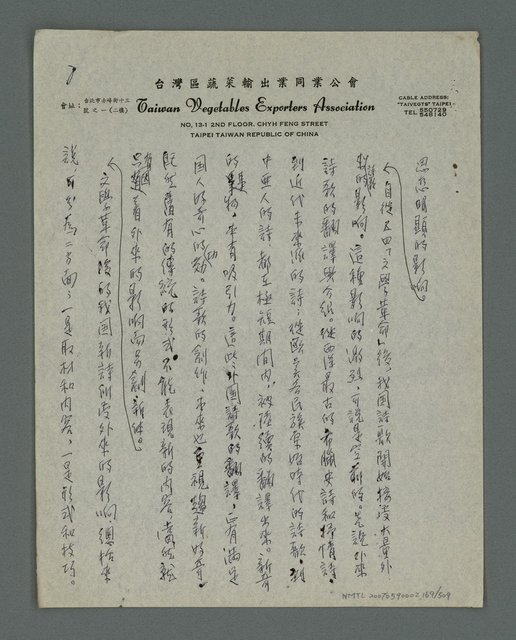 7
台灣區蔬菜輸出業同業公會
會址：台北市赤峰街十三號之一(二樓)
Taiwan Vegetables Exporters Association
CABLE ADDRESS:
"TAIVEGTS" TAIPEI
TEL 550729
548140
NO. 13-1 2ND FLOOR. CHYH FENG STREET
TAIPEI TAIWAN REPUBLIC OF CHINA
思想明顯的影响。
自從五四「文學革命」後，我国詩歌開始接受大量外
來的影响。這種影响的激烈，可說是空前的。先說外來
詩歌的翻譯與介紹。從西洋最古的希臘史詩和抒情詩，
到近代未來派的詩；從歐美各民族原始時代的詩歌，到
中亞人的詩，都在極短期間內，被陸續的翻譯出來。新奇
的事物，本有吸引力。這些外国詩歌的翻譯，正有滿足
国人好奇心的功効。詩歌的創作，本來也重視趨新好奇。
既然舊有的傳統的形式，不能表現新的內容，當然就
只有隨着外來的影响而另創新体。
文學革命後的我国新詩所受外來的影响，總括來
說，可分為二方面：一是取材和內容，一是形式和技巧。
NMTL 20070590002 169/509